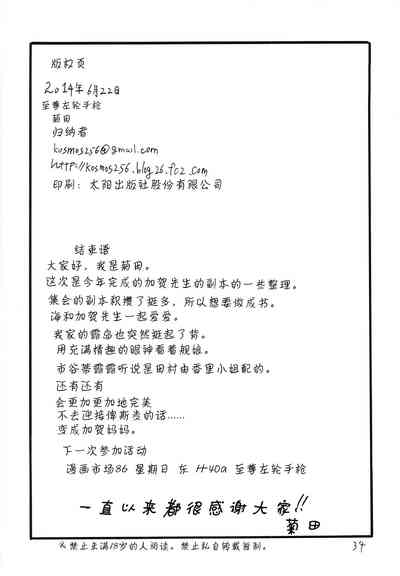 版权页
2014年6月22日
至尊左轮手枪
菊田
归纳君
kosmos256@gmail.com
http://kosmos256.blog26.fc2.com
印刷：太阳出版社股份有限公司
结束语
大家好，我是菊田。
这次是今年完成的加贺先生的副本的一些整理。
集会的副本积攒了挺多，所以想要做成书。
海和加贺先生一起爱爱。
我家的露岛也突然挺起了背。
用充满情趣的眼神看着舰娘。
市谷蒂露露听说是田村由香里小姐配的。
还有还有
会更加更加地完美
不去迎接俾斯麦的话……
变成加贺妈妈。
下一次参加活动
漫画市场86 星期日 东 H-40a 至尊左轮手枪
一直以来都很感谢大家!!
菊田
禁止未满18岁的人阅读。禁止私自转载复制。
34